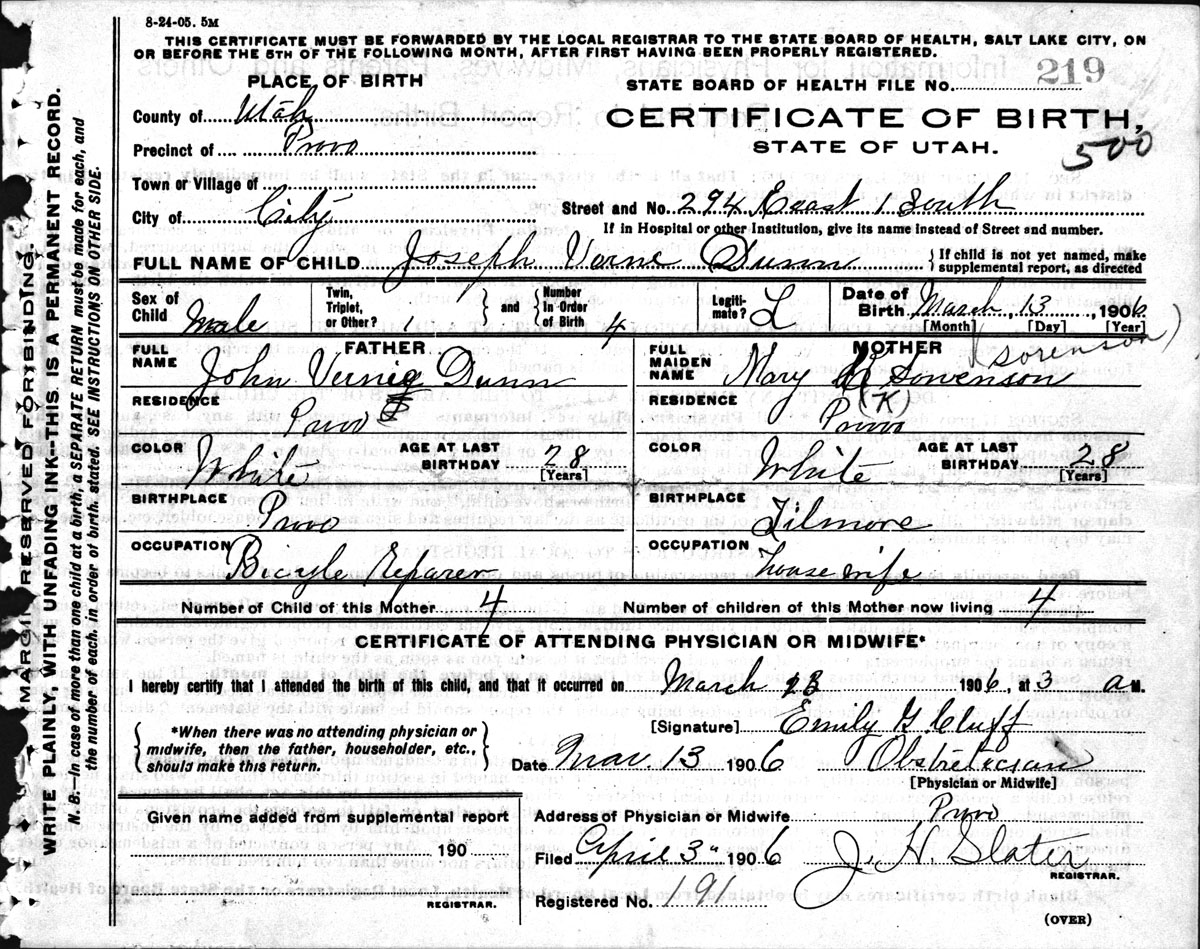 8-24-05. 5M
THIS CERTIFICATE MUST BE FORWARDED BY THE LOCAL REGISTRAR TO THE STATE BOARD OF HEALTH, SALT LAKE CITY, ON
OR BEFORE THE 5TH OF THE FOLLOWING MONTH, AFTER FIRST HAVING BEEN PROPERLY REGISTERED.
PLACE OF BIRTH
STATE BOARD OF HEALTH FILE NO. 219
County of Utah
CERTIFICATE OF BIRTH,
Precinct of Provo
STATE OF UTAH.
500
Town or Village of
City of City
Street and No. 294 East 1 South
If in Hospital or other Institution, give its name instead of Street and number.
FULL NAME OF CHILD Joseph Verne Dunn
{ If child is not yet named, make
supplemental report, as directed
Sex of Child Male
Twin, Triplet, or Other? 1 } and { Number In Order of Birth 4
Legitimate? L
Date of Birth March 13, 1906
[Month] [Day] [Year]
FATHER
FULL NAME John Vernie Dunn
RESIDENCE Provo
COLOR White
AGE AT LAST BIRTHDAY 28
[Years]
BIRTHPLACE Provo
OCCUPATION Bicyle Reparer
MOTHER
(Sorenson)
FULL MAIDEN NAME Mary Sowenson
(K)
RESIDENCE Provo
COLOR White
AGE AT LAST BIRTHDAY 28
[Years]
BIRTHPLACE Filmore
OCCUPATION house wife
Number of Child of this Mother 4
Number of children of this Mother now living 4
CERTIFICATE OF ATTENDING PHYSICIAN OR MIDWIFE*
I hereby certify that I attended the birth of this child, and that it occurred on March 13 1906, at 3 a M.
{ *When there was no attending physician or
midwife, then the father, householder, etc.,
should make this return. }
[Signature] Emily G. Cluff
Date Mar. 13 1906 Obstretician
[Physician or Midwife]
Given name added from supplemental report
190
REGISTRAR.
Address of Physician or Midwife Provo
Filed April 3" 1906 J. H. Slater
REGISTRAR.
Registered No. 191
(OVER)
MARGIN RESERVED FOR BINDING.
WRITE PLAINLY, WITH UNFADING INK—THIS IS A PERMANENT RECORD.
N. B.—In case of more than one child at a birth, a SEPARATE RETURN must be made for each, and
the number of each, in order of birth, stated. SEE INSTRUCTIONS ON OTHER SIDE.